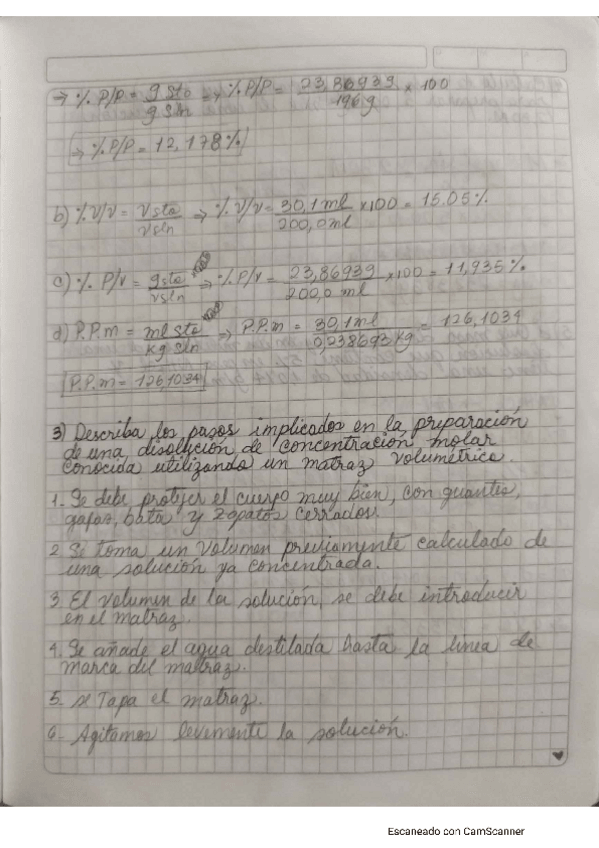 → % P/P = g sto / g sln → % P/P = 23,86939 / 196 g × 100
→ % P/P = 12,178 %
b) % V/V = V sto / V sln → % V/V = 30,1 ml / 200,0 ml × 100 = 15.05 %
c) % P/V = g sto / V sln → % P/V = 23,86939 / 200,0 ml × 100 = 11,935 %
d) P.P.m = ml sto / kg sln → P.P.m = 30,1 ml / 0,238693 kg = 126,1034
P.P.m = 126,1034
3) Describa los pasos implicados en la preparación
de una disolución de concentración molar
conocida utilizando un matraz volumétrico.
1. Se debe protejer el cuerpo muy bien, con guantes,
gafas, bata y zapatos cerrados.
2 Si toma un volumen previamente calculado de
una solución ya concentrada.
3. El volumen de la solución, se debe introducir
en el matraz.
4. Se añade el agua destilada hasta la linea de
marca del matraz.
5. Tapa el matraz.
6. Agitamos levemente la solución.
Escaneado con CamScanner